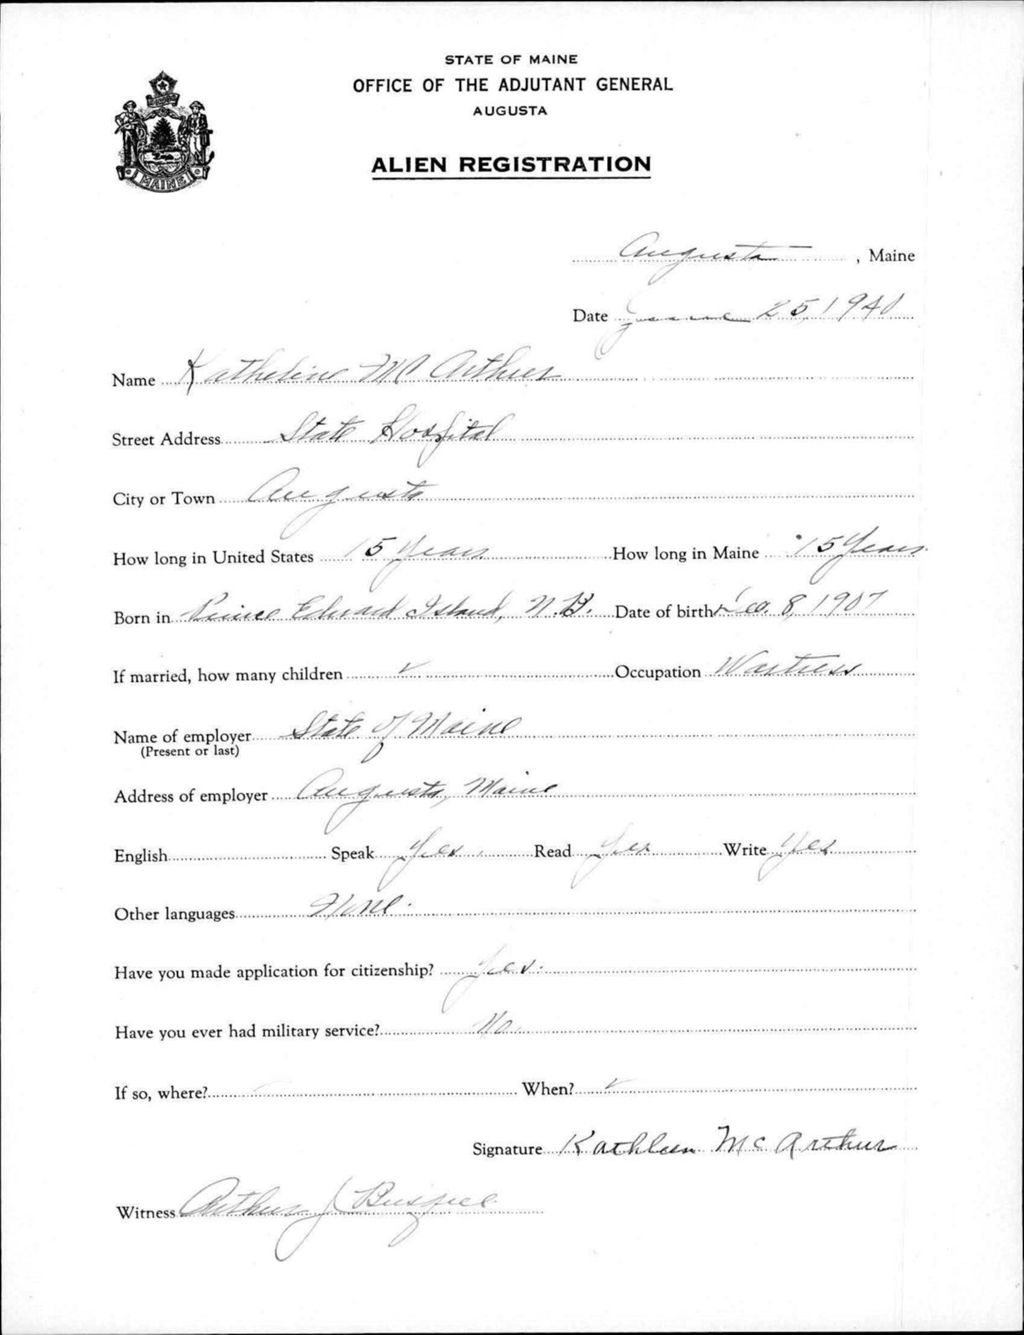 STATE OF MAINE
OFFICE OF THE ADJUTANT GENERAL
AUGUSTA
ALIEN REGISTRATION
MAINE
Augusta, Maine
Date June 25, 1940
Name Katheline McArthur
Street Address State Hospital
City or Town Augusta
How long in United States 15 Years How long in Maine 15 Years
Born in Prince Edward Island, N.B. Date of birth 8, 1907
If married, how many children ✓ Occupation Waitress
Name of employer State of Maine
(Present or last)
Address of employer Augusta, Maine
English Speak Yes. Read Yes Write Yes
Other languages None.
Have you made application for citizenship? Yes.
Have you ever had military service? No.
If so, where? When? ✓
Signature Kathleen McArthur
Witness Arthur J